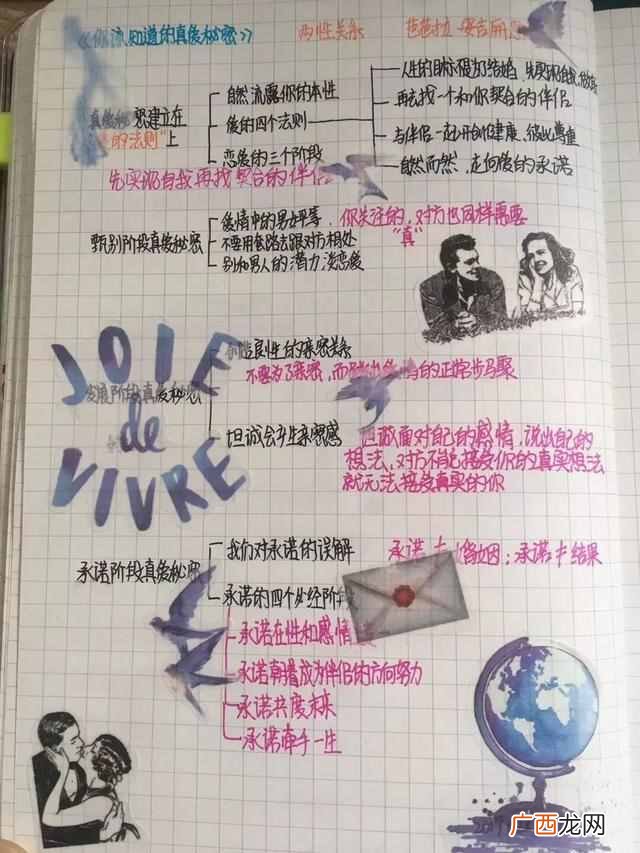 《你该知道的真爱秘密》 两性关系 芭芭拉·安吉丽思
真爱秘密建立在
"爱的法则"上
自然流露你的本性
爱的四个法则
恋爱的三个阶段
人生的目标不是为了结婚 先实现自我
再去找一个和你契合的伴侣
与伴侣一起开创健康、彼此尊重
自然而然,走向爱的承诺
先实现自我再找契合的伴侣
甄别阶段真爱秘密
爱情中的男女平等
不要用套路去跟对方相处
别和男人的潜力谈恋爱
你关注的,对方也同样需要
"真"
JOIE
de
VIVRE
发展阶段真爱秘密
创造良性的亲密关系
不要为了亲密,而 的正常步骤
坦诚会产生亲密感
坦诚面对自己的感情,说出自己的
想法,对方不能接受你的真实想法
就无法接受真实的你
承诺阶段真爱秘密
我们对承诺的误解
承诺≠婚姻;承诺≠结果
承诺的四个必经阶段
承诺在性和感情
承诺朝着成为伴侣的方向努力
承诺共度未来
承诺牵手一生
广西龙网